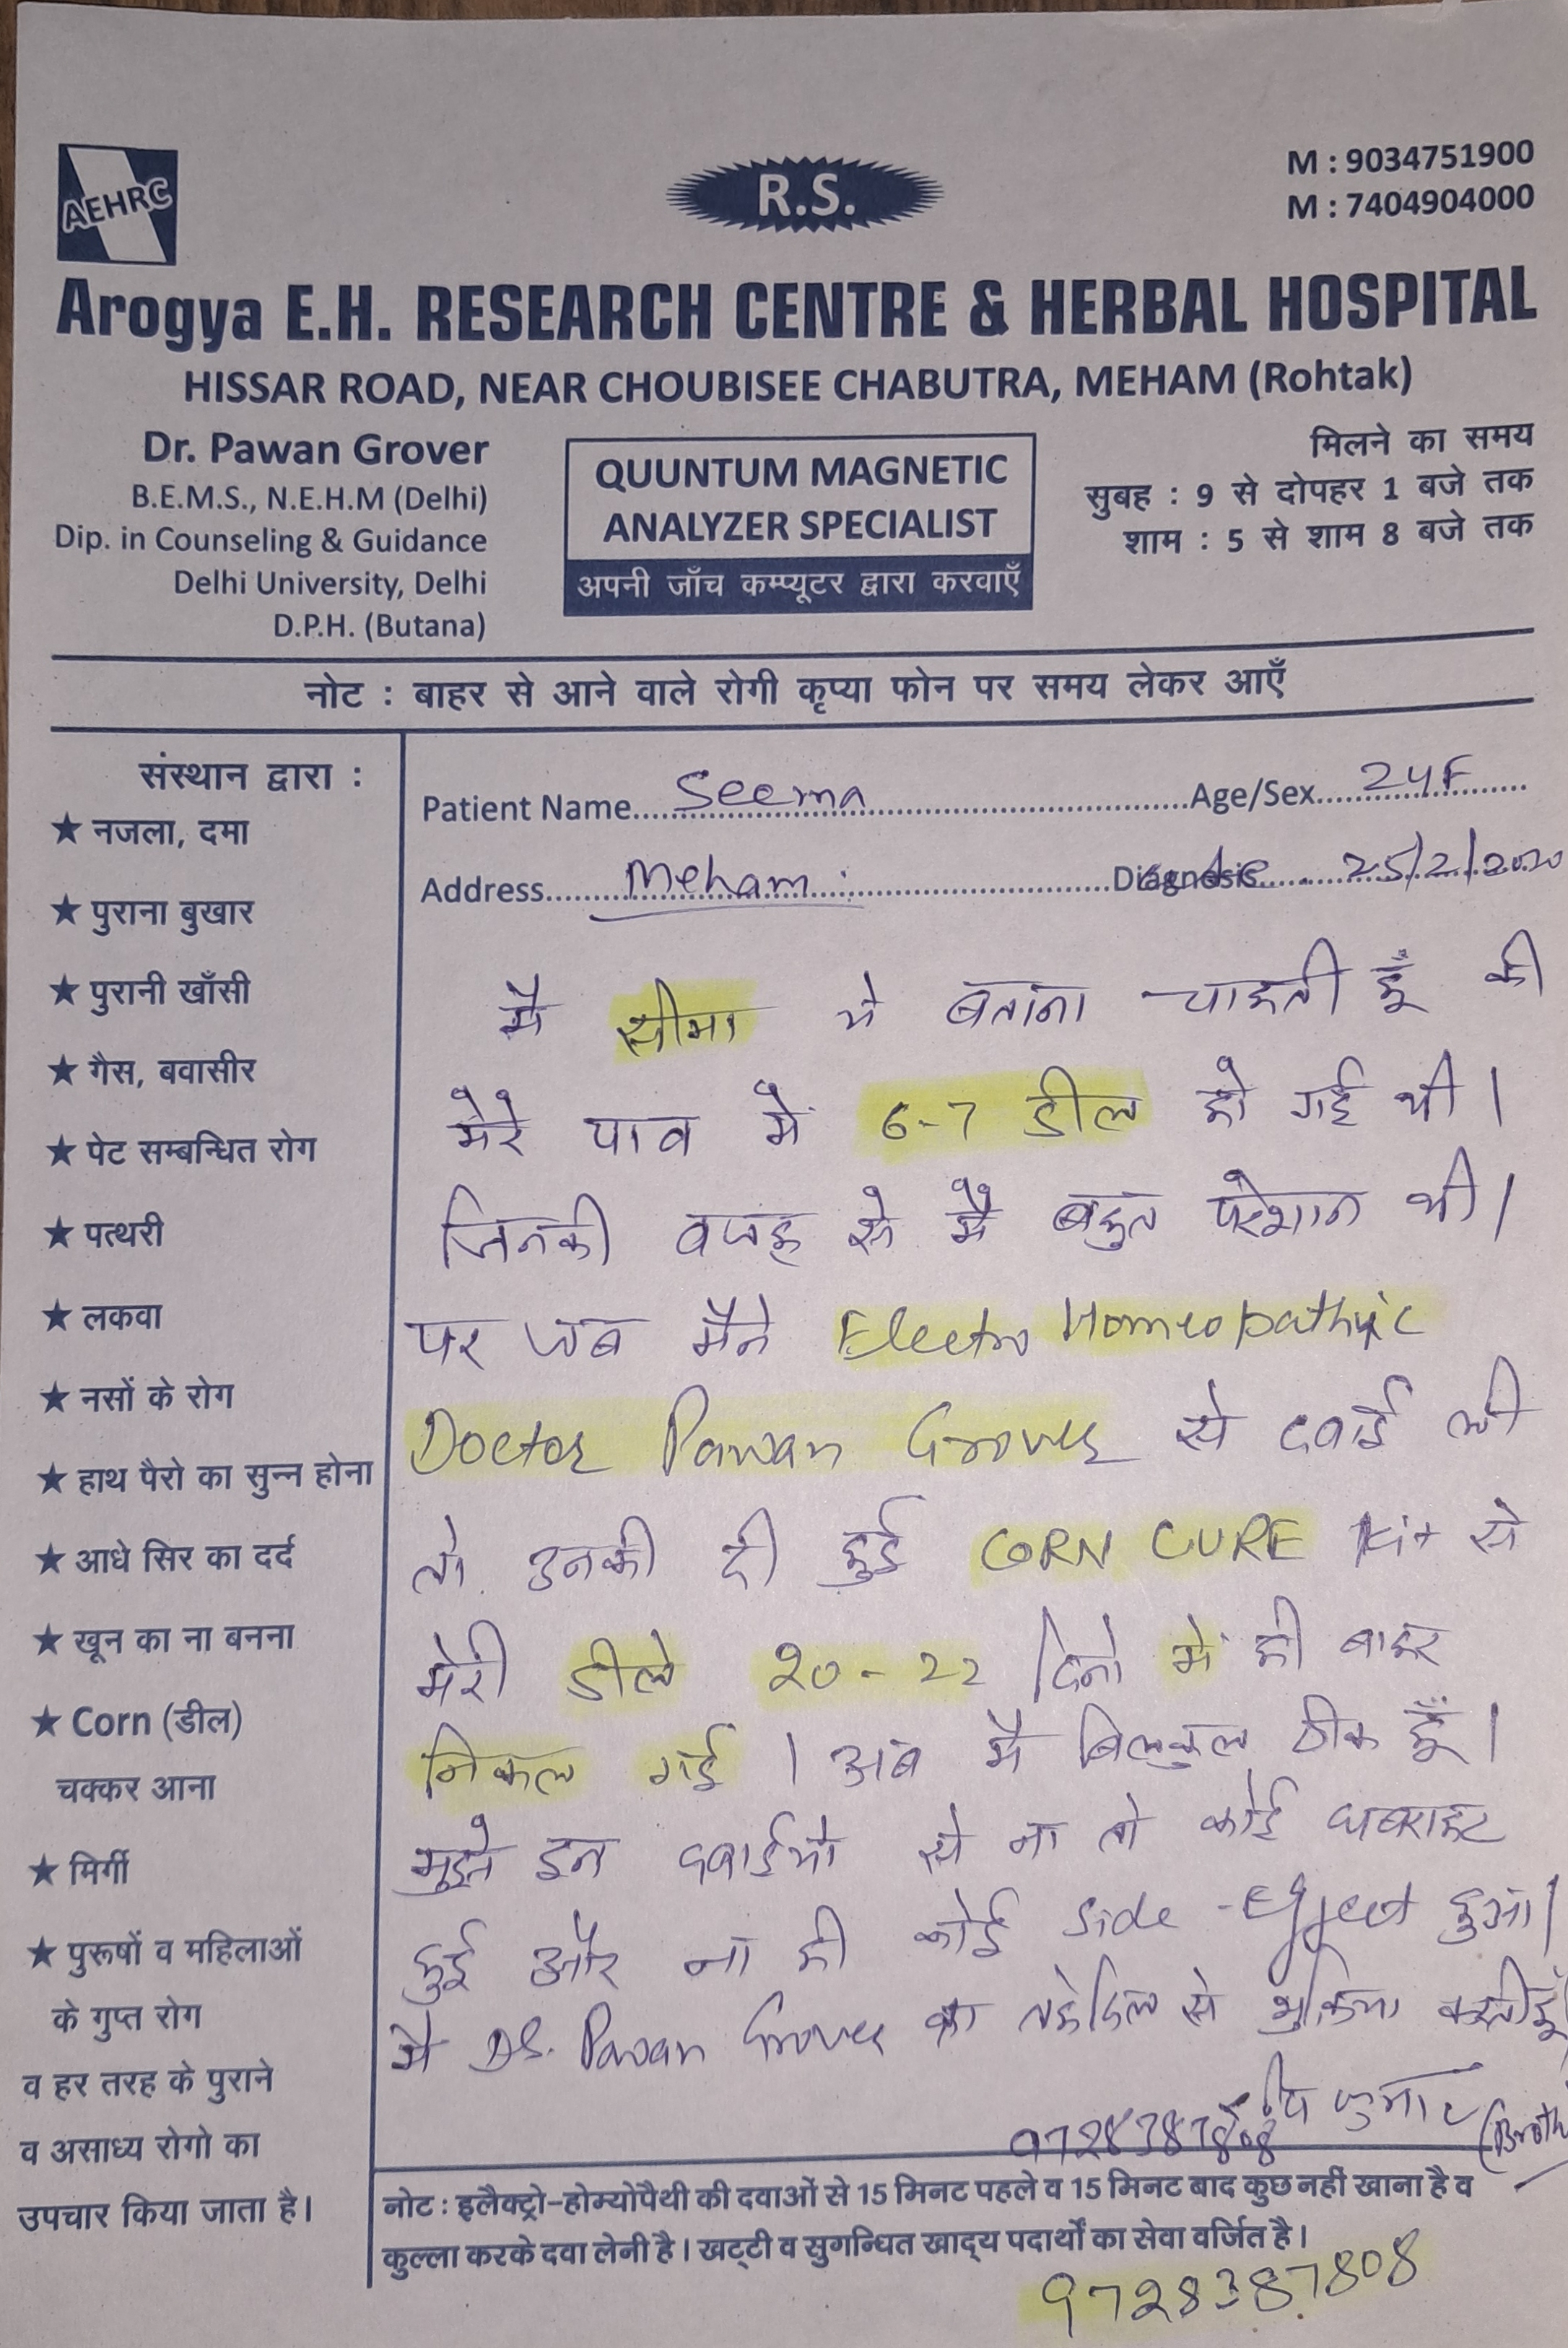 AEHRC
R.S.
M : 9034751900
M : 7404904000
Arogya E.H. RESEARCH CENTRE & HERBAL HOSPITAL
HISSAR ROAD, NEAR CHOUBISEE CHABUTRA, MEHAM (Rohtak)
Dr. Pawan Grover
B.E.M.S., N.E.H.M (Delhi)
Dip. in Counseling & Guidance
Delhi University, Delhi
D.P.H. (Butana)
QUUNTUM MAGNETIC
ANALYZER SPECIALIST
अपनी जाँच कम्प्यूटर द्वारा करवाएँ
मिलने का समय
सुबह : 9 से दोपहर 1 बजे तक
शाम : 5 से शाम 8 बजे तक
नोट : बाहर से आने वाले रोगी कृप्या फोन पर समय लेकर आएँ
संस्थान द्वारा :
★ नजला, दमा
★ पुराना बुखार
★ पुरानी खाँसी
★ गैस, बवासीर
★ पेट सम्बन्धित रोग
★ पत्थरी
★ लकवा
★ नसों के रोग
★ हाथ पैरो का सुन्न होना
★ आधे सिर का दर्द
★ खून का ना बनना
★ Corn (डील)
चक्कर आना
★ मिर्गी
★ पुरूषों व महिलाओं
के गुप्त रोग
व हर तरह के पुराने
व असाध्य रोगो का
उपचार किया जाता है।
Patient Name Seema Age/Sex 24F
Address Meham Diagnosis 25/2/2020
मै सीमा ये बताना चाहती हूँ की
मेरे पाव में 6-7 डील हो गई थी।
जिनकी वजह से मैं बहुत परेशान थी।
पर जब मैंने Electro Homeopathic
Doctor Pawan Grover से दवाई ली
तो उनकी दी हुई CORN CURE Kit से
मेरी डीले 20-22 दिनो में ही बाहर
निकल गई। अब मै बिलकुल ठीक हूँ।
मुझे इन दवाईयो से ना तो कोई घबराहट
हुई और ना ही कोई Side-Effect हुआ।
मै Dr. Pawan Grover का तहेदिल से शुक्रिया करती हूँ।
9728387808 कुमार
नोट : इलैक्ट्रो-होम्योपैथी की दवाओं से 15 मिनट पहले व 15 मिनट बाद कुछ नहीं खाना है व
कुल्ला करके दवा लेनी है। खट्टी व सुगन्धित खाद्य पदार्थों का सेवा वर्जित है।
9728387808